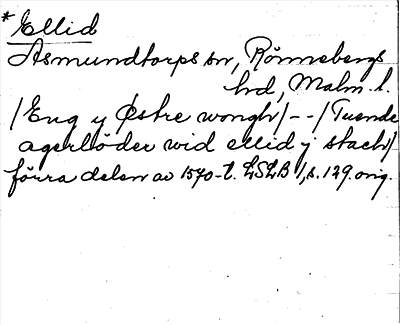 * Ellid
Asmundtorps sn, Rönnebergs
hd, Malm. l.
/Eng y Østre wongh/--/Tuende
agerböder wid ellid j stack/
förra delen av 1570-t. LSLB 1, s. 129. orig.